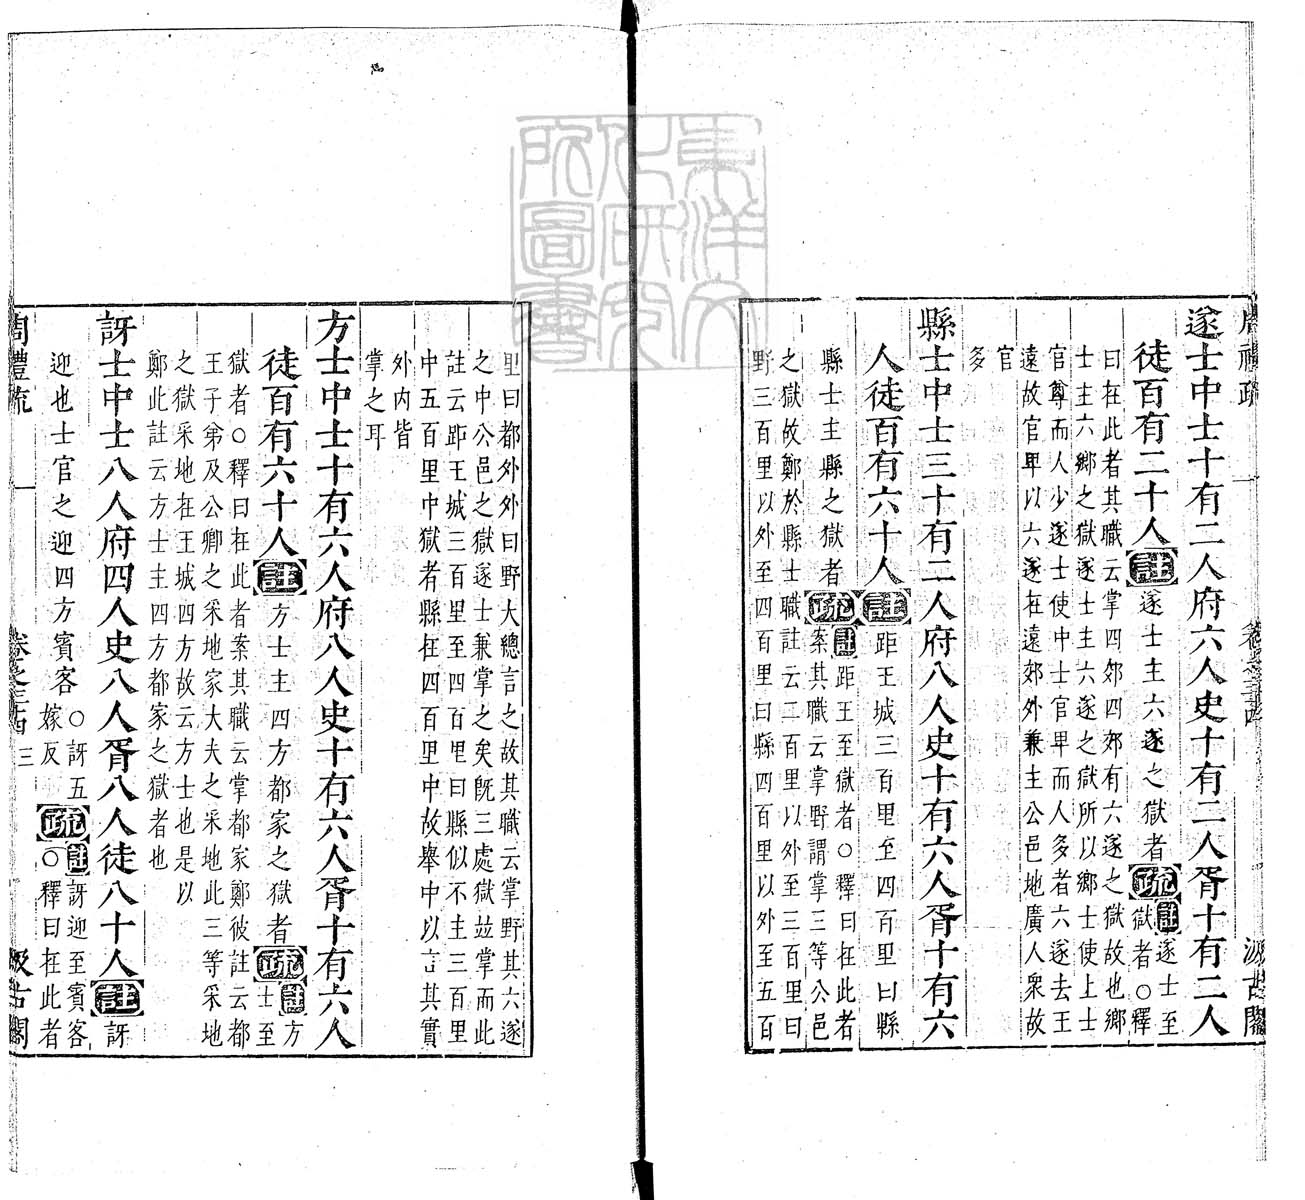 周禮疏 卷之三十四 汲古閣
遂士中士十有二人府六人史十有二人胥十有二人
徒百有二十人註遂士主六遂之獄者疏註遂士至
獄者○釋
曰在此者其職云掌四郊四郊有六遂之獄故也鄉
士主六鄉之獄遂士主六遂之獄所以鄉士使上士
官尊而人少遂士使中士官卑而人多者六遂去王
遠故官卑以六遂在遠郊外兼主公邑地廣人衆故
官
多
縣士中士三十有二人府八人史十有六人胥十有六
人徒百有六十人註距王城三百里至四百里曰縣
縣士主縣之獄者疏註距王至獄者○釋曰在此者
案其職云掌野謂掌三等公邑
之獄故鄭於縣士職註云二百里以外至三百里曰
野三百里以外至四百里曰縣四百里以外至五百
里曰都外外曰野大總言之故其職云掌野其六遂
之中公邑之獄遂士兼掌之矣既三處獄並掌而此
註云距王城三百里至四百里曰縣似不主三百里
中五百里中獄者縣在四百里中故舉中以言其實
外内皆
掌之耳
方士中士十有六人府八人史十有六人胥十有六人
徒百有六十人註方士主四方都家之獄者疏註方
士至
獄者○釋曰在此者案其職云掌都家鄭彼註云都
王子弟及公卿之采地家大夫之采地此三等采地
之獄采地在王城四方故云方士也是以
鄭此註云方士主四方都家之獄者也
訝士中士八人府四人史八人胥八人徒八十人註訝
迎也士官之迎四方賓客○訝五
嫁反疏註訝迎至賓客
○釋曰在此者
周禮疏 卷之三十四 三 汲古閣
東洋文化研究所圖書